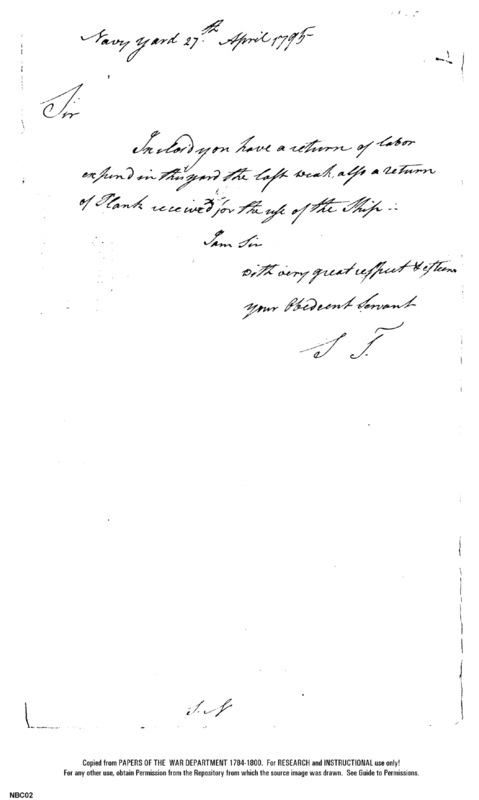 Navy Yard 27th April 1795
Sir
Inclosd you have a return of labor
expend in this yard the last weak. also a return
of Plank received for the use of the Ship
I am Sir
with very great respect & esteem
your Obedeent Servant
S T.
S. N
Copied from PAPERS OF THE WAR DEPARTMENT 1784-1800. For RESEARCH and INSTRUCTIONAL use only!
For any other use, obtain Permission from the Repository from which the source image was drawn. See Guide to Permissions.
NBC02